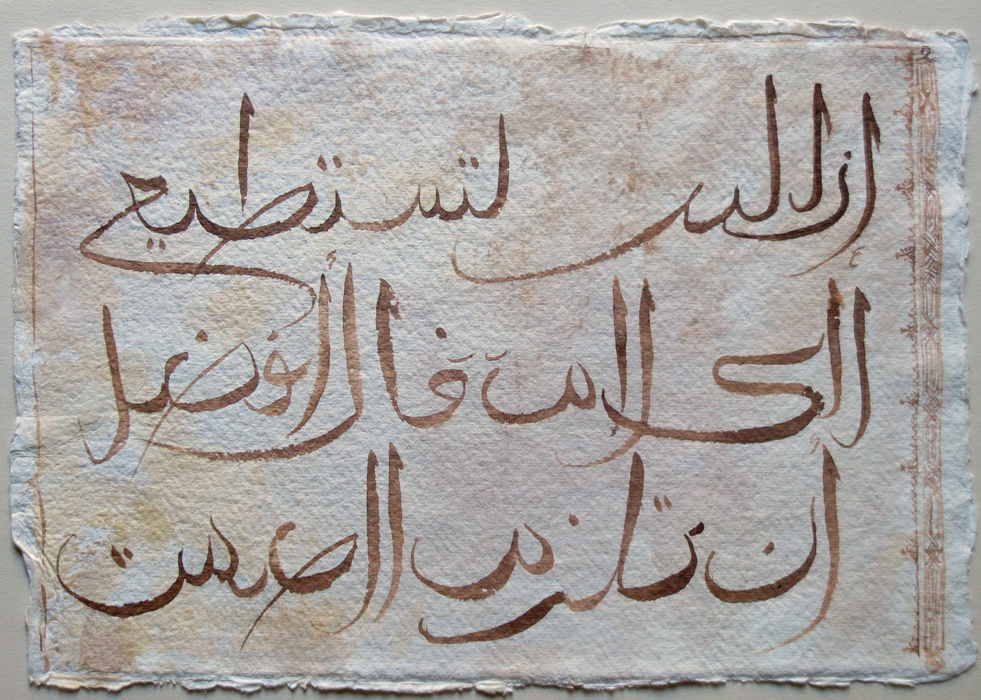 إذا لم تستطيع
الكلام فالأفضل
أن تلزم الصمت